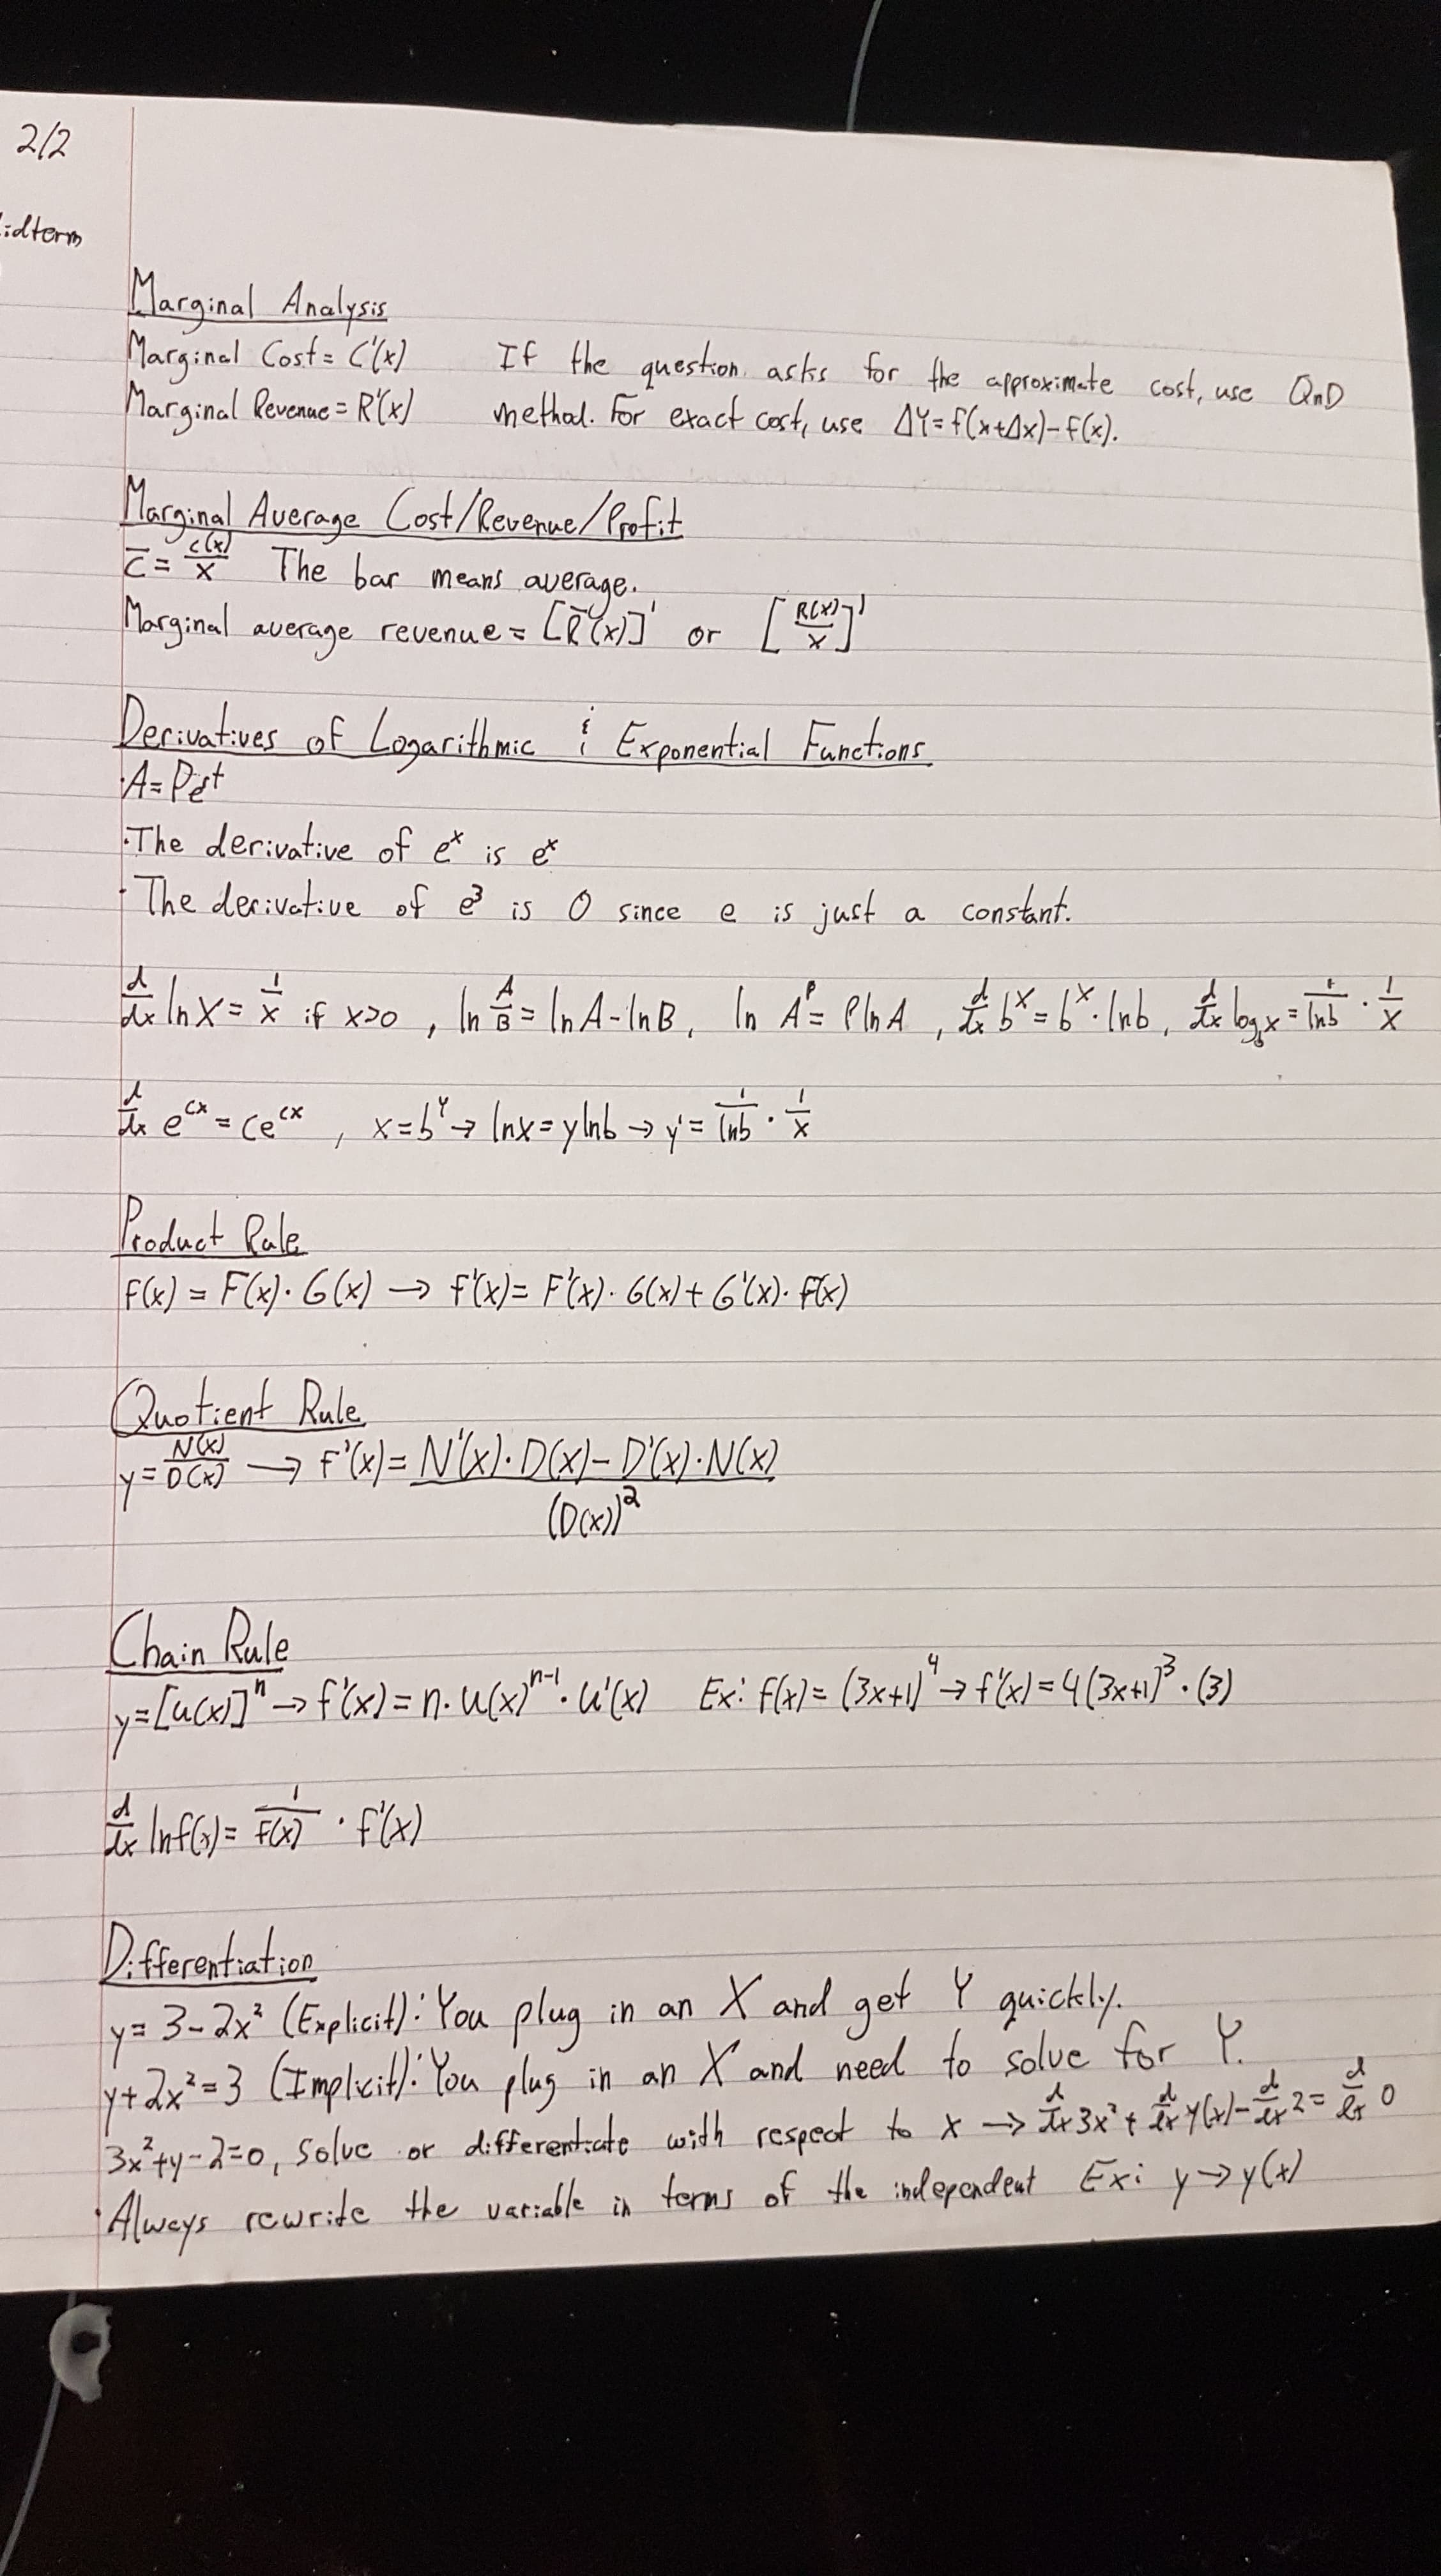 2/2
idterm
Marginal Analysis
Marginal Cost = C'(x) If the question asks for the approximate cost, use QnD
Marginal Revenue = R'(x) method. For exact cost, use ΔY = f(x+Δx) - f(x).
Marginal Average Cost/Revenue/Profit
C̅ = C(x)/x The bar means average.
Marginal average revenue = [R̅(x)]' or [R(x)/x]'
Derivatives of Logarithmic & Exponential Functions
·A = Pe^rt
·The derivative of e^x is e^x
·The derivative of e^3 is 0 since e is just a constant.
d/dx ln x = 1/x if x>0, ln A/B = ln A - ln B, ln A^P = P ln A, d/dx b^x = b^x · ln b, d/dx log_b x = 1/ln b · 1/x
d/dx e^cx = ce^cx, x = b^y → ln x = y ln b → y' = 1/ln b · 1/x
Product Rule
f(x) = F(x) · G(x) → f'(x) = F'(x) · G(x) + G'(x) · F(x)
Quotient Rule
y = N(x)/D(x) → f'(x) = N'(x) · D(x) - D'(x) · N(x)
(D(x))^2
Chain Rule
y = [u(x)]^n → f'(x) = n · u(x)^n-1 · u'(x) Ex: f(x) = (3x+1)^4 → f'(x) = 4(3x+1)^3 · (3)
d/dx ln f(x) = 1/f(x) · f'(x)
Differentiation
y = 3 - 2x² (Explicit): You plug in an X and get Y quickly.
y + 2x² = 3 (Implicit): You plug in an X and need to solve for Y.
3x² + y - 2 = 0, solve or differentiate with respect to x → d/dx 3x² + d/dx y(x) - d/dx 2 = d/dx 0
·Always rewrite the variable in terms of the independent Ex: y → y(x)